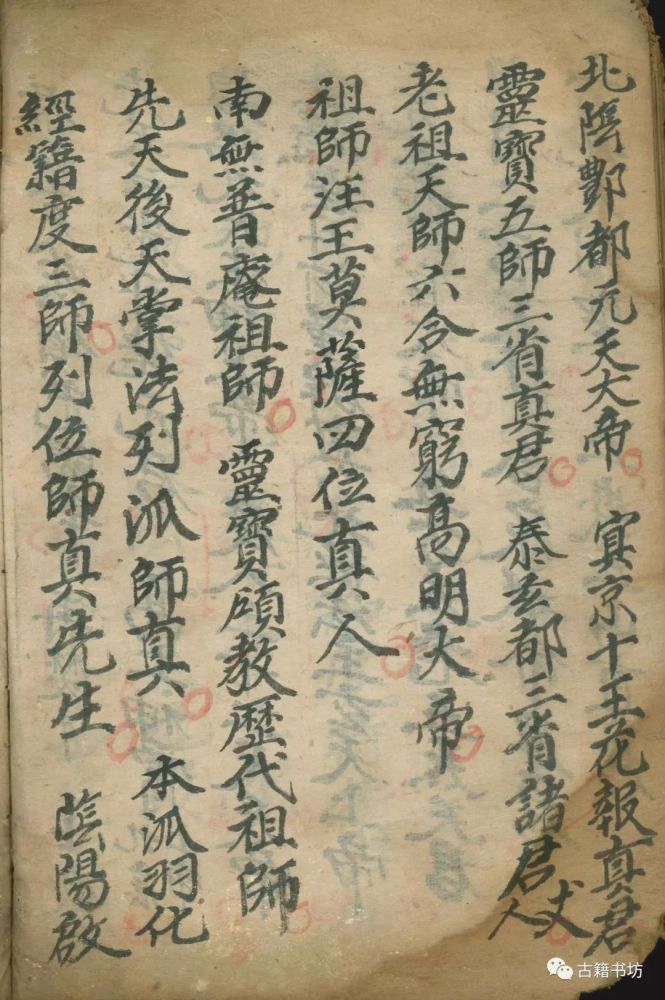 北陰酆都元天大帝 寘京十王花報真君
靈寶五師三省真君 泰玄都三省諸君丈人
老祖天師六合無窮高明大帝
祖師汪王莫薩四位真人
南無普庵祖師 靈寶頒教歷代祖師
先天後天掌法列派師真 本派羽化
經籍度三師列位師真先生 蔭陽啟
古籍书坊